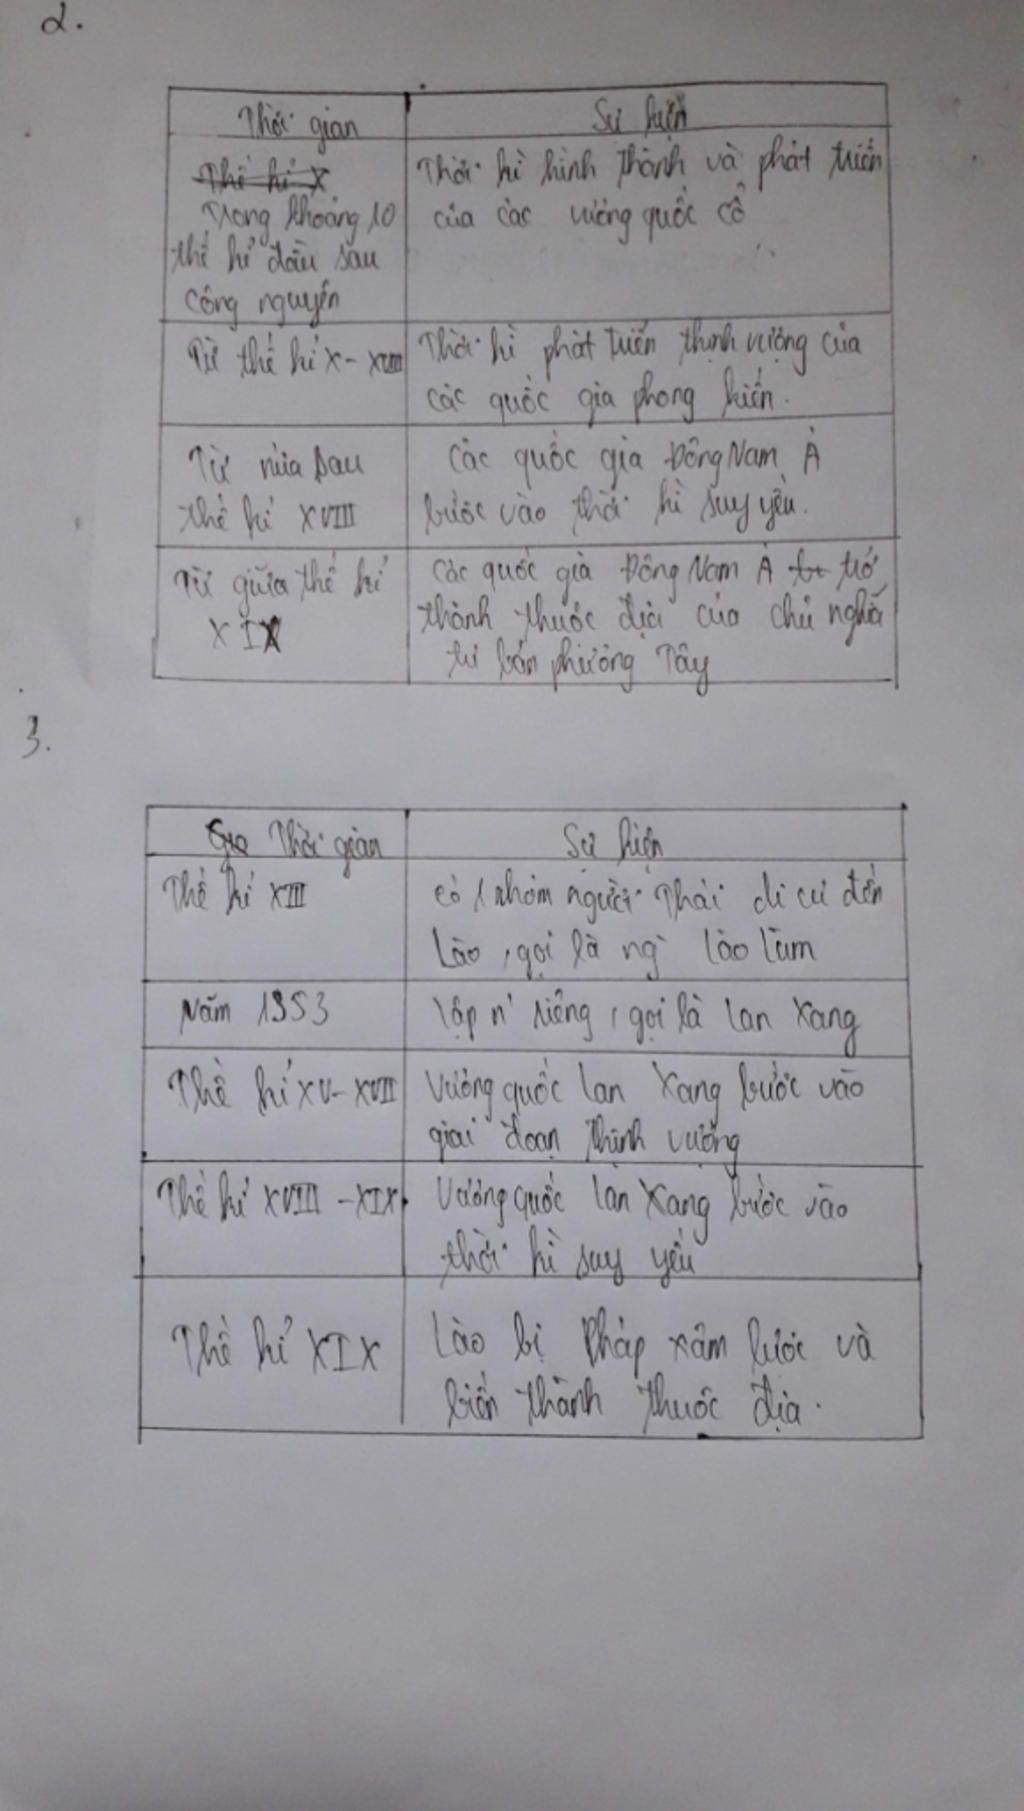 2.
Thời gian
Sự kiện
Thế kỉ X
Trong khoảng 10
thế kỉ đầu sau
công nguyên
Thời kì hình thành và phát triển
của các vương quốc cổ
Từ thế kỉ X - XVIII
Thời kì phát triển thịnh vượng của
các quốc gia phong kiến.
Từ nửa sau
thế kỉ XVIII
Các quốc gia Đông Nam Á
bước vào thời kì suy yếu.
Từ giữa thế kỉ
XIX
Các quốc gia Đông Nam Á trở
thành thuộc địa của chủ nghĩa
tư bản phương Tây
3.
Thời gian
Sự kiện
Thế kỉ XIII
Có 1 nhóm người Thái di cư đến
Lào, gọi là ng` Lào Lùm
Năm 1353
lập n' riêng, gọi là Lan Xang
Thế kỉ XV - XVII
Vương quốc Lan Xang bước vào
giai đoạn thịnh vượng
Thế kỉ XVIII - XIX
Vương quốc Lan Xang bước vào
thời kì suy yếu
Thế kỉ XIX
Lào bị Pháp xâm lược và
biến thành thuộc địa.